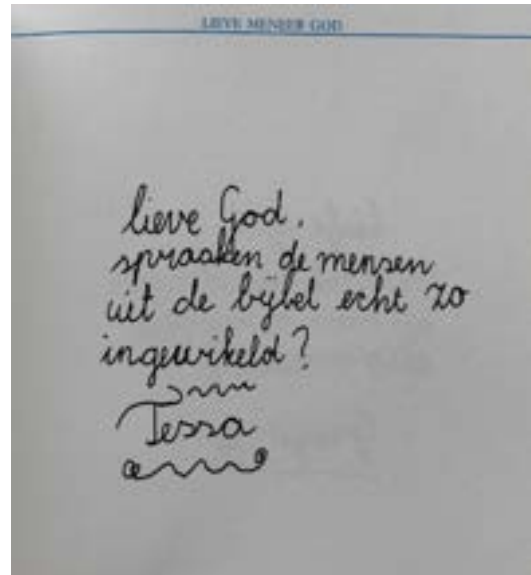 LIEVE MENEER GOD
lieve God,
spraaken de mensen
uit de bijbel echt zo
ingewikeld?
Tessa